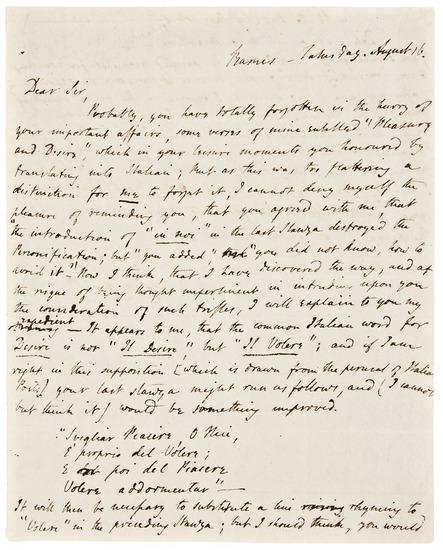 Barnes – Saturday. August 16.
Dear Sir,
Probably, you have totally forgotten in the hurry of
your important affairs, some verses of mine entitled "Pleasure
and Desire," which in your leisure moments you honoured by
translating into Italian; but as this was too flattering a
distinction for me to forget it, I cannot deny myself the
pleasure of reminding you, that you agreed with me, that
the introduction of "in noi" in the last Stanza destroyed the
Personification; but "you added" "you did not know, how to
avoid it." Now I think, that I have discovered the way, and at
the risque of being thought impertinent in intruding upon you
the consideration of such trifles, I will explain to you my
expedient
– It appears to me, that the common Italian word for
Desire is not "Il Desire," but "Il Volere"; and if I am
right in this supposition [which is drawn from the perusal of Italian
Poets] your last stanza might run as follows, and (I cannot
but think it) would be something improved.
"Svegliar Piacere, O Nice,
E' proprio del Volere;
E poi del Piacere
Volere addormentar" –
It will then be necessary to substitute a line rhyming to
"Volere" in the preceding Stanza; but I should think, you would